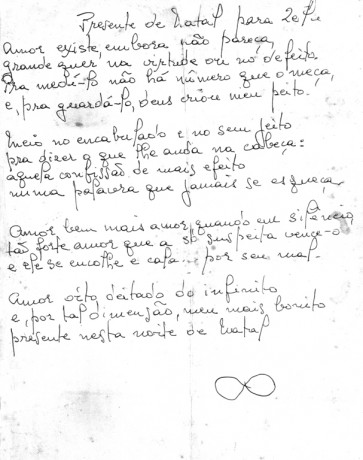 Presente de Natal para Zefi
Amor existe, embora não pareça,
grande quer na virtude ou no defeito.
Pra medi-lo não há número que o meça,
e, pra guardá-lo, Deus criou meu peito.
no encabulado e no sem jeito
pra dizer o que lhe anda na cabeça:
aquela confissão de mais efeito
numa palavra que jamais se esqueça.
Amor, bem mais amor, quando em silêncio
tão forte amor que a só suspeita vence-o
e ele se encolhe e cala... por seu mal.
Amor oito deitado do infinito
e, por tal dimensão, meu mais bonito
presente nesta noite de Natal
∞